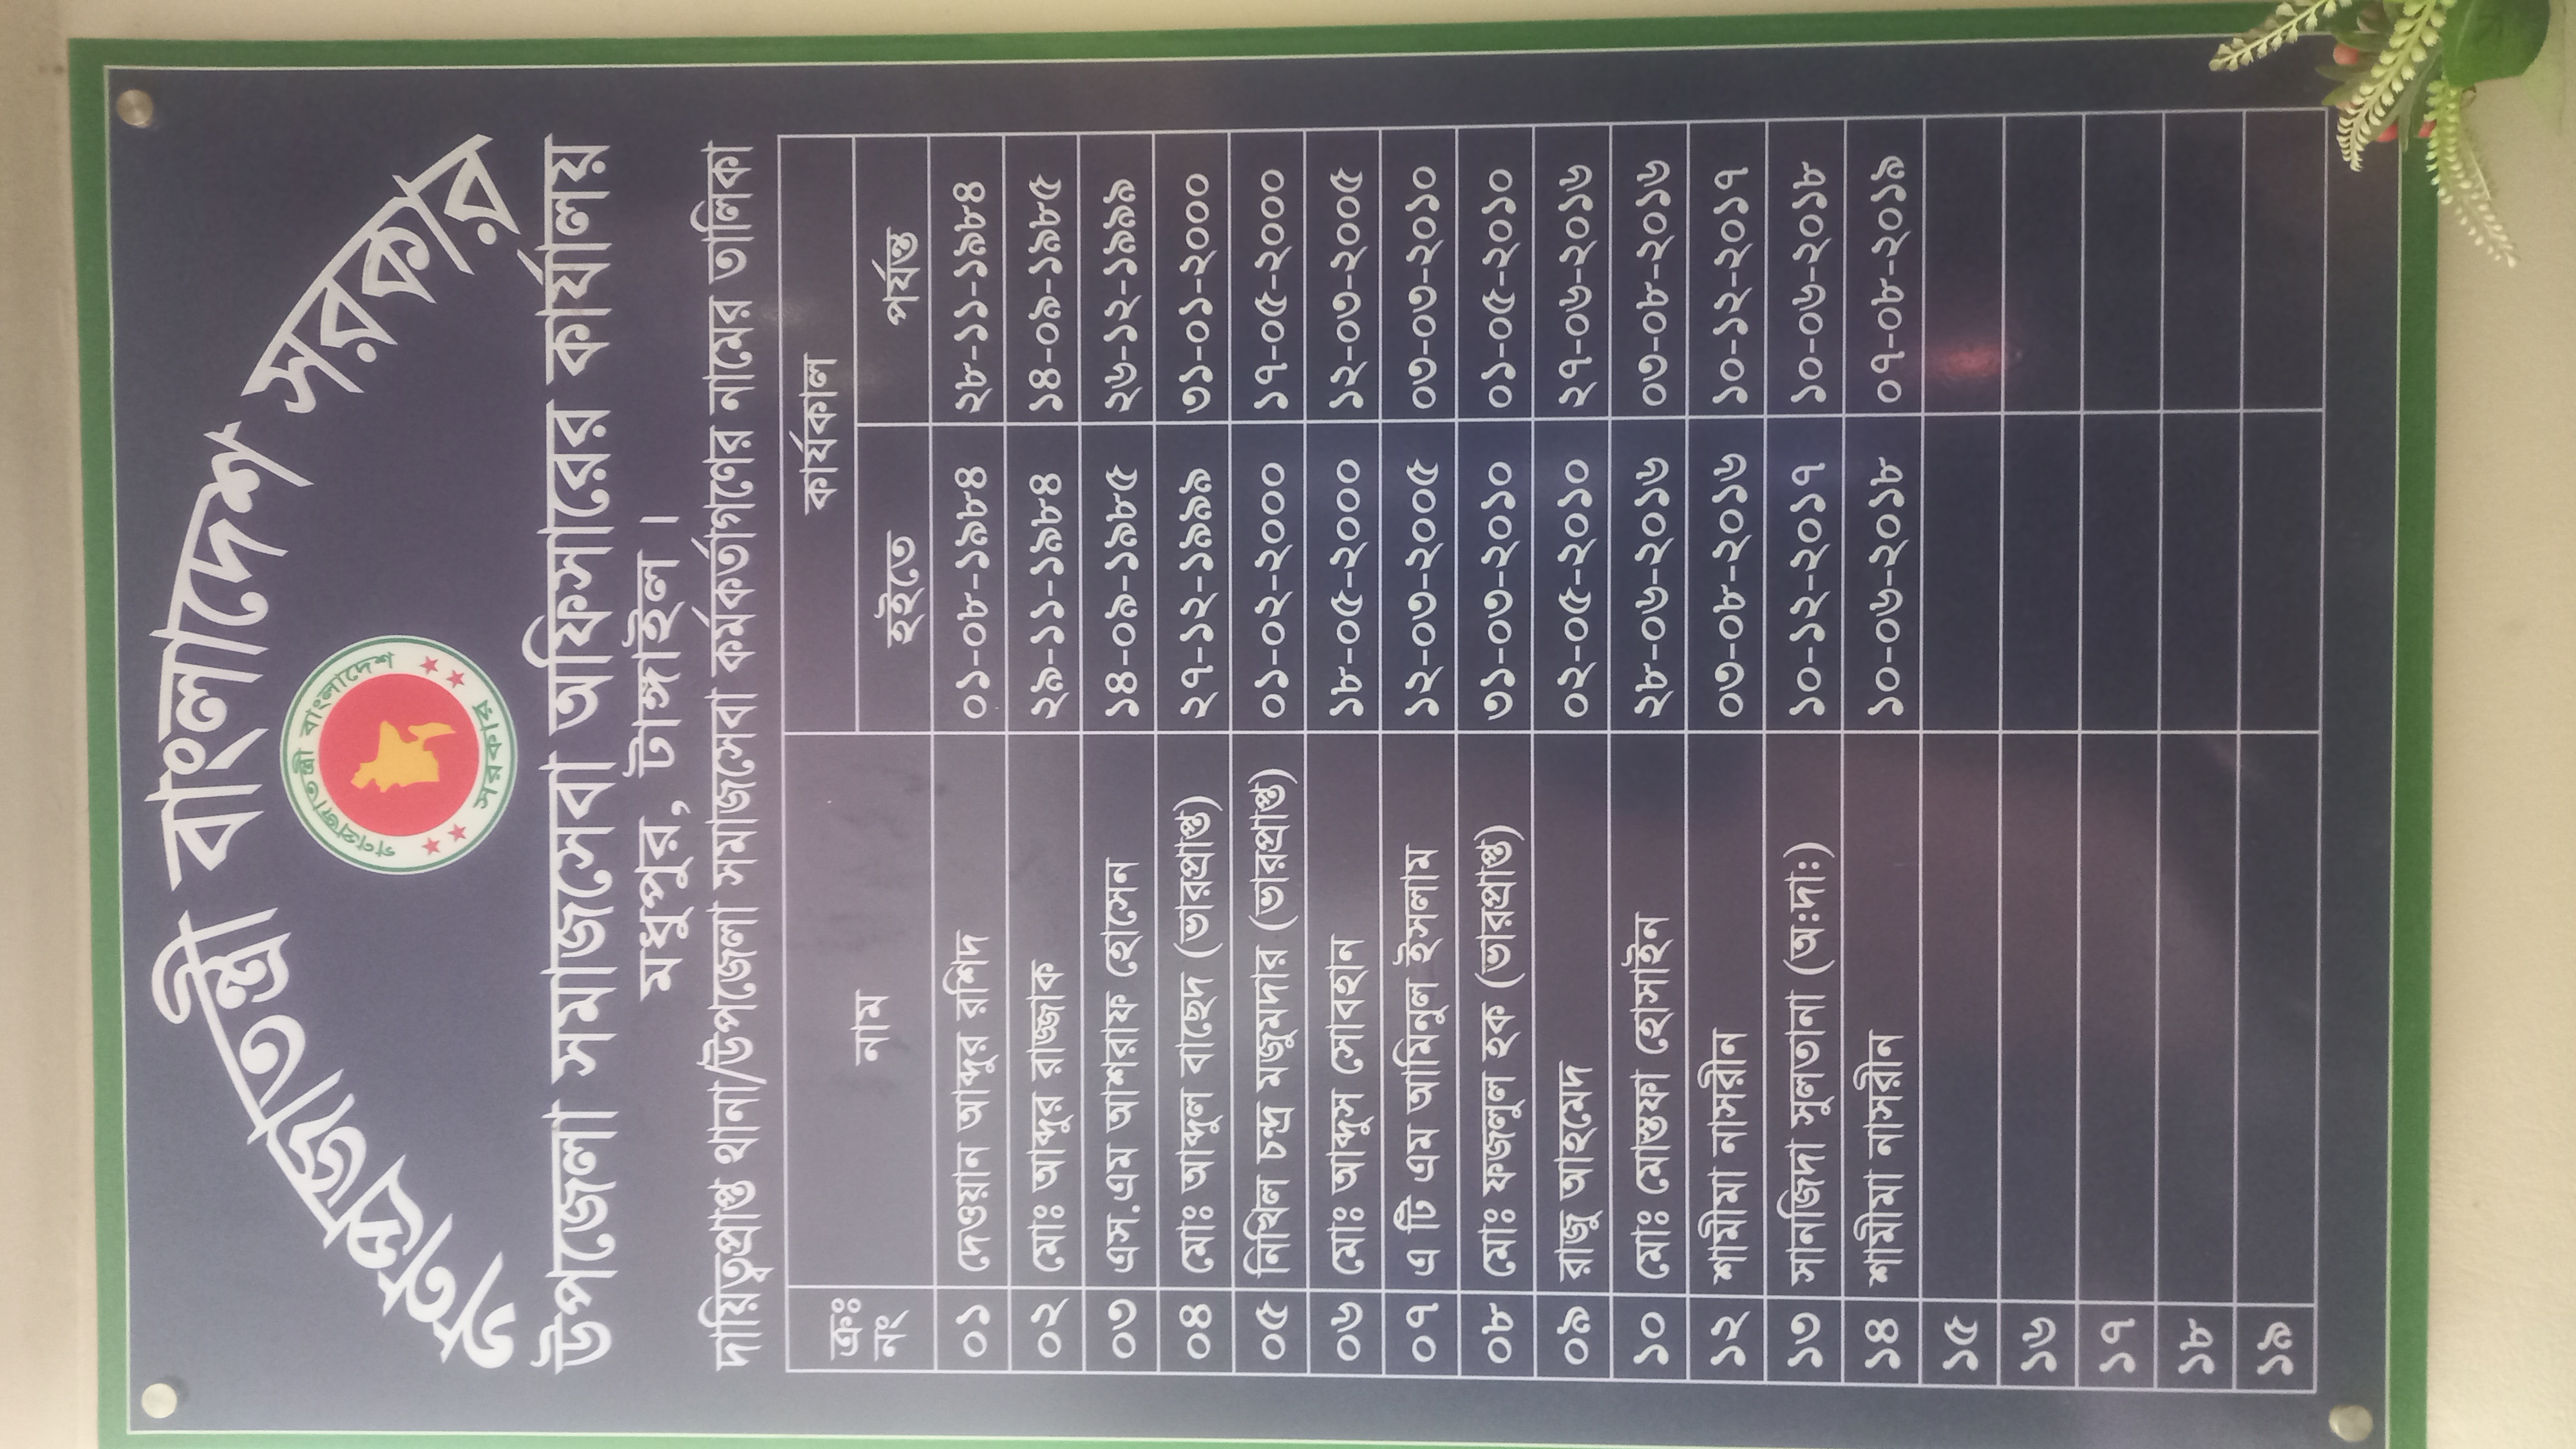 গণপ্রজাতন্ত্রী বাংলাদেশ সরকার
গণপ্রজাতন্ত্রী বাংলাদেশ
সরকার
উপজেলা সমাজসেবা অফিসারের কার্যালয়
মধুপুর, টাঙ্গাইল ।
দায়িত্বপ্রাপ্ত থানা/উপজেলা সমাজসেবা কর্মকর্তাগণের নামের তালিকা
ক্রঃ নং নাম কার্যকাল
হইতে পর্যন্ত
০১ দেওয়ান আব্দুর রশিদ ০১-০৮-১৯৮৪ ২৮-১১-১৯৮৪
০২ মোঃ আব্দুর রাজ্জাক ২৯-১১-১৯৮৪ ১৪-০৯-১৯৮৫
০৩ এস.এম আশরাফ হোসেন ১৪-০৯-১৯৮৫ ২৬-১২-১৯৯৯
০৪ মোঃ আব্দুল বাছেদ (ভারপ্রাপ্ত) ২৭-১২-১৯৯৯ ৩১-০১-২০০০
০৫ নিখিল চন্দ্র মজুমদার (ভারপ্রাপ্ত) ০১-০২-২০০০ ১৭-০৫-২০০০
০৬ মোঃ আব্দুস সোবহান ১৮-০৫-২০০০ ১২-০৩-২০০৫
০৭ এ টি এম আমিনুল ইসলাম ১২-০৩-২০০৫ ০৩-০৩-২০১০
০৮ মোঃ ফজলুল হক (ভারপ্রাপ্ত) ৩১-০৩-২০১০ ০১-০৫-২০১০
০৯ রাজু আহমেদ ০২-০৫-২০১০ ২৭-০৬-২০১৬
১০ মোঃ মোস্তফা হোসাইন ২৮-০৬-২০১৬ ০৩-০৮-২০১৬
১২ শামীমা নাসরীন ০৩-০৮-২০১৬ ১০-১২-২০১৭
১৩ সানজিদা সুলতানা (অ:দা:) ১০-১২-২০১৭ ১০-০৬-২০১৮
১৪ শামীমা নাসরীন ১০-০৬-২০১৮ ০৭-০৮-২০১৯
১৫
১৬
১৭
১৮
১৯